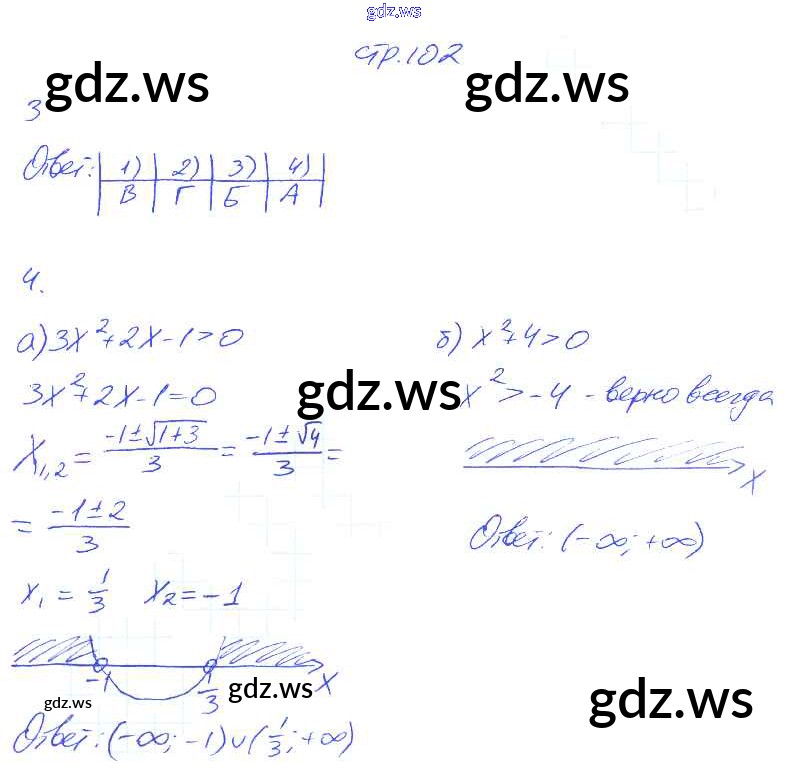 gdz.ws
стр.102
gdz.ws gdz.ws
3
Ответ: 1) 2) 3) 4)
В Г Б А
4.
а) 3x²+2x-1>0
3x²+2x-1=0
x₁,₂ = (-1±√(1+3))/3 = (-1±√4)/3 =
= (-1±2)/3
x₁ = 1/3 x₂ = -1
-1 1/3 x
Ответ: (-∞; -1)∪(1/3; +∞)
б) x²+4>0
gdz.ws
x² > -4 - верно всегда
x
Ответ: (-∞; +∞)
gdz.ws gdz.ws gdz.ws